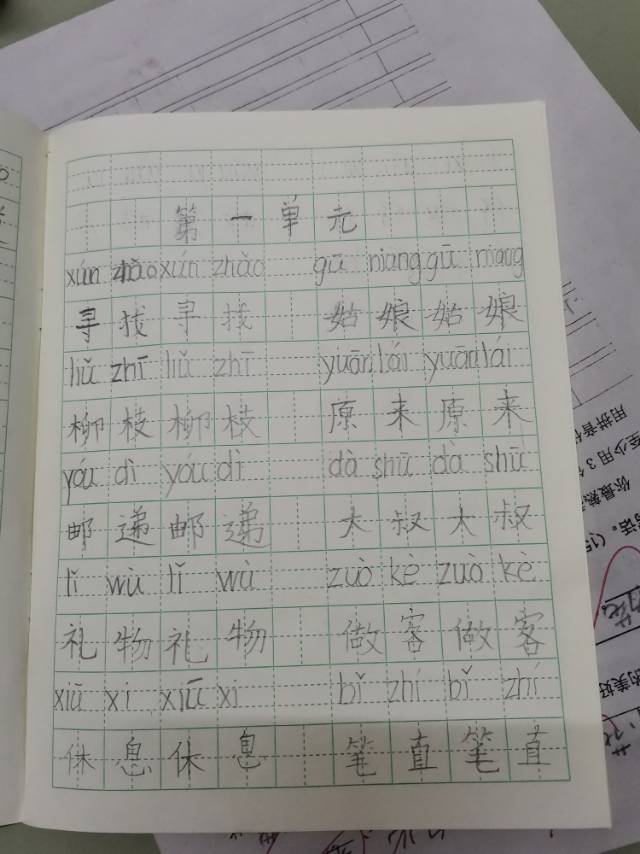 第一单元
xún zhǎo xún zhǎo gū niang gū niang
寻找寻找 姑娘姑娘
liǔ zhī liǔ zhī yuán lái yuán lái
柳枝柳枝 原来原来
yóu dì yóu dì dà shū dà shū
邮递邮递 大叔大叔
lǐ wù lǐ wù zuò kè zuò kè
礼物礼物 做客做客
xiū xi xiū xi bǐ zhí bǐ zhí
休息休息 笔直笔直
用拼音
至少用3
你最熟
话。(15
的美好